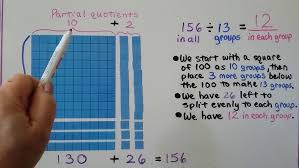 Partial quotients
10 + 2
130 + 26 = 156
156 ÷ 13 = 12
in all groups in each group
•We start with a square
of 100 as 10 groups, then
place 3 more groups below
the 100 to make 13 groups.
•We have 26 left to
split evenly to each group.
•We have 12 in each group.